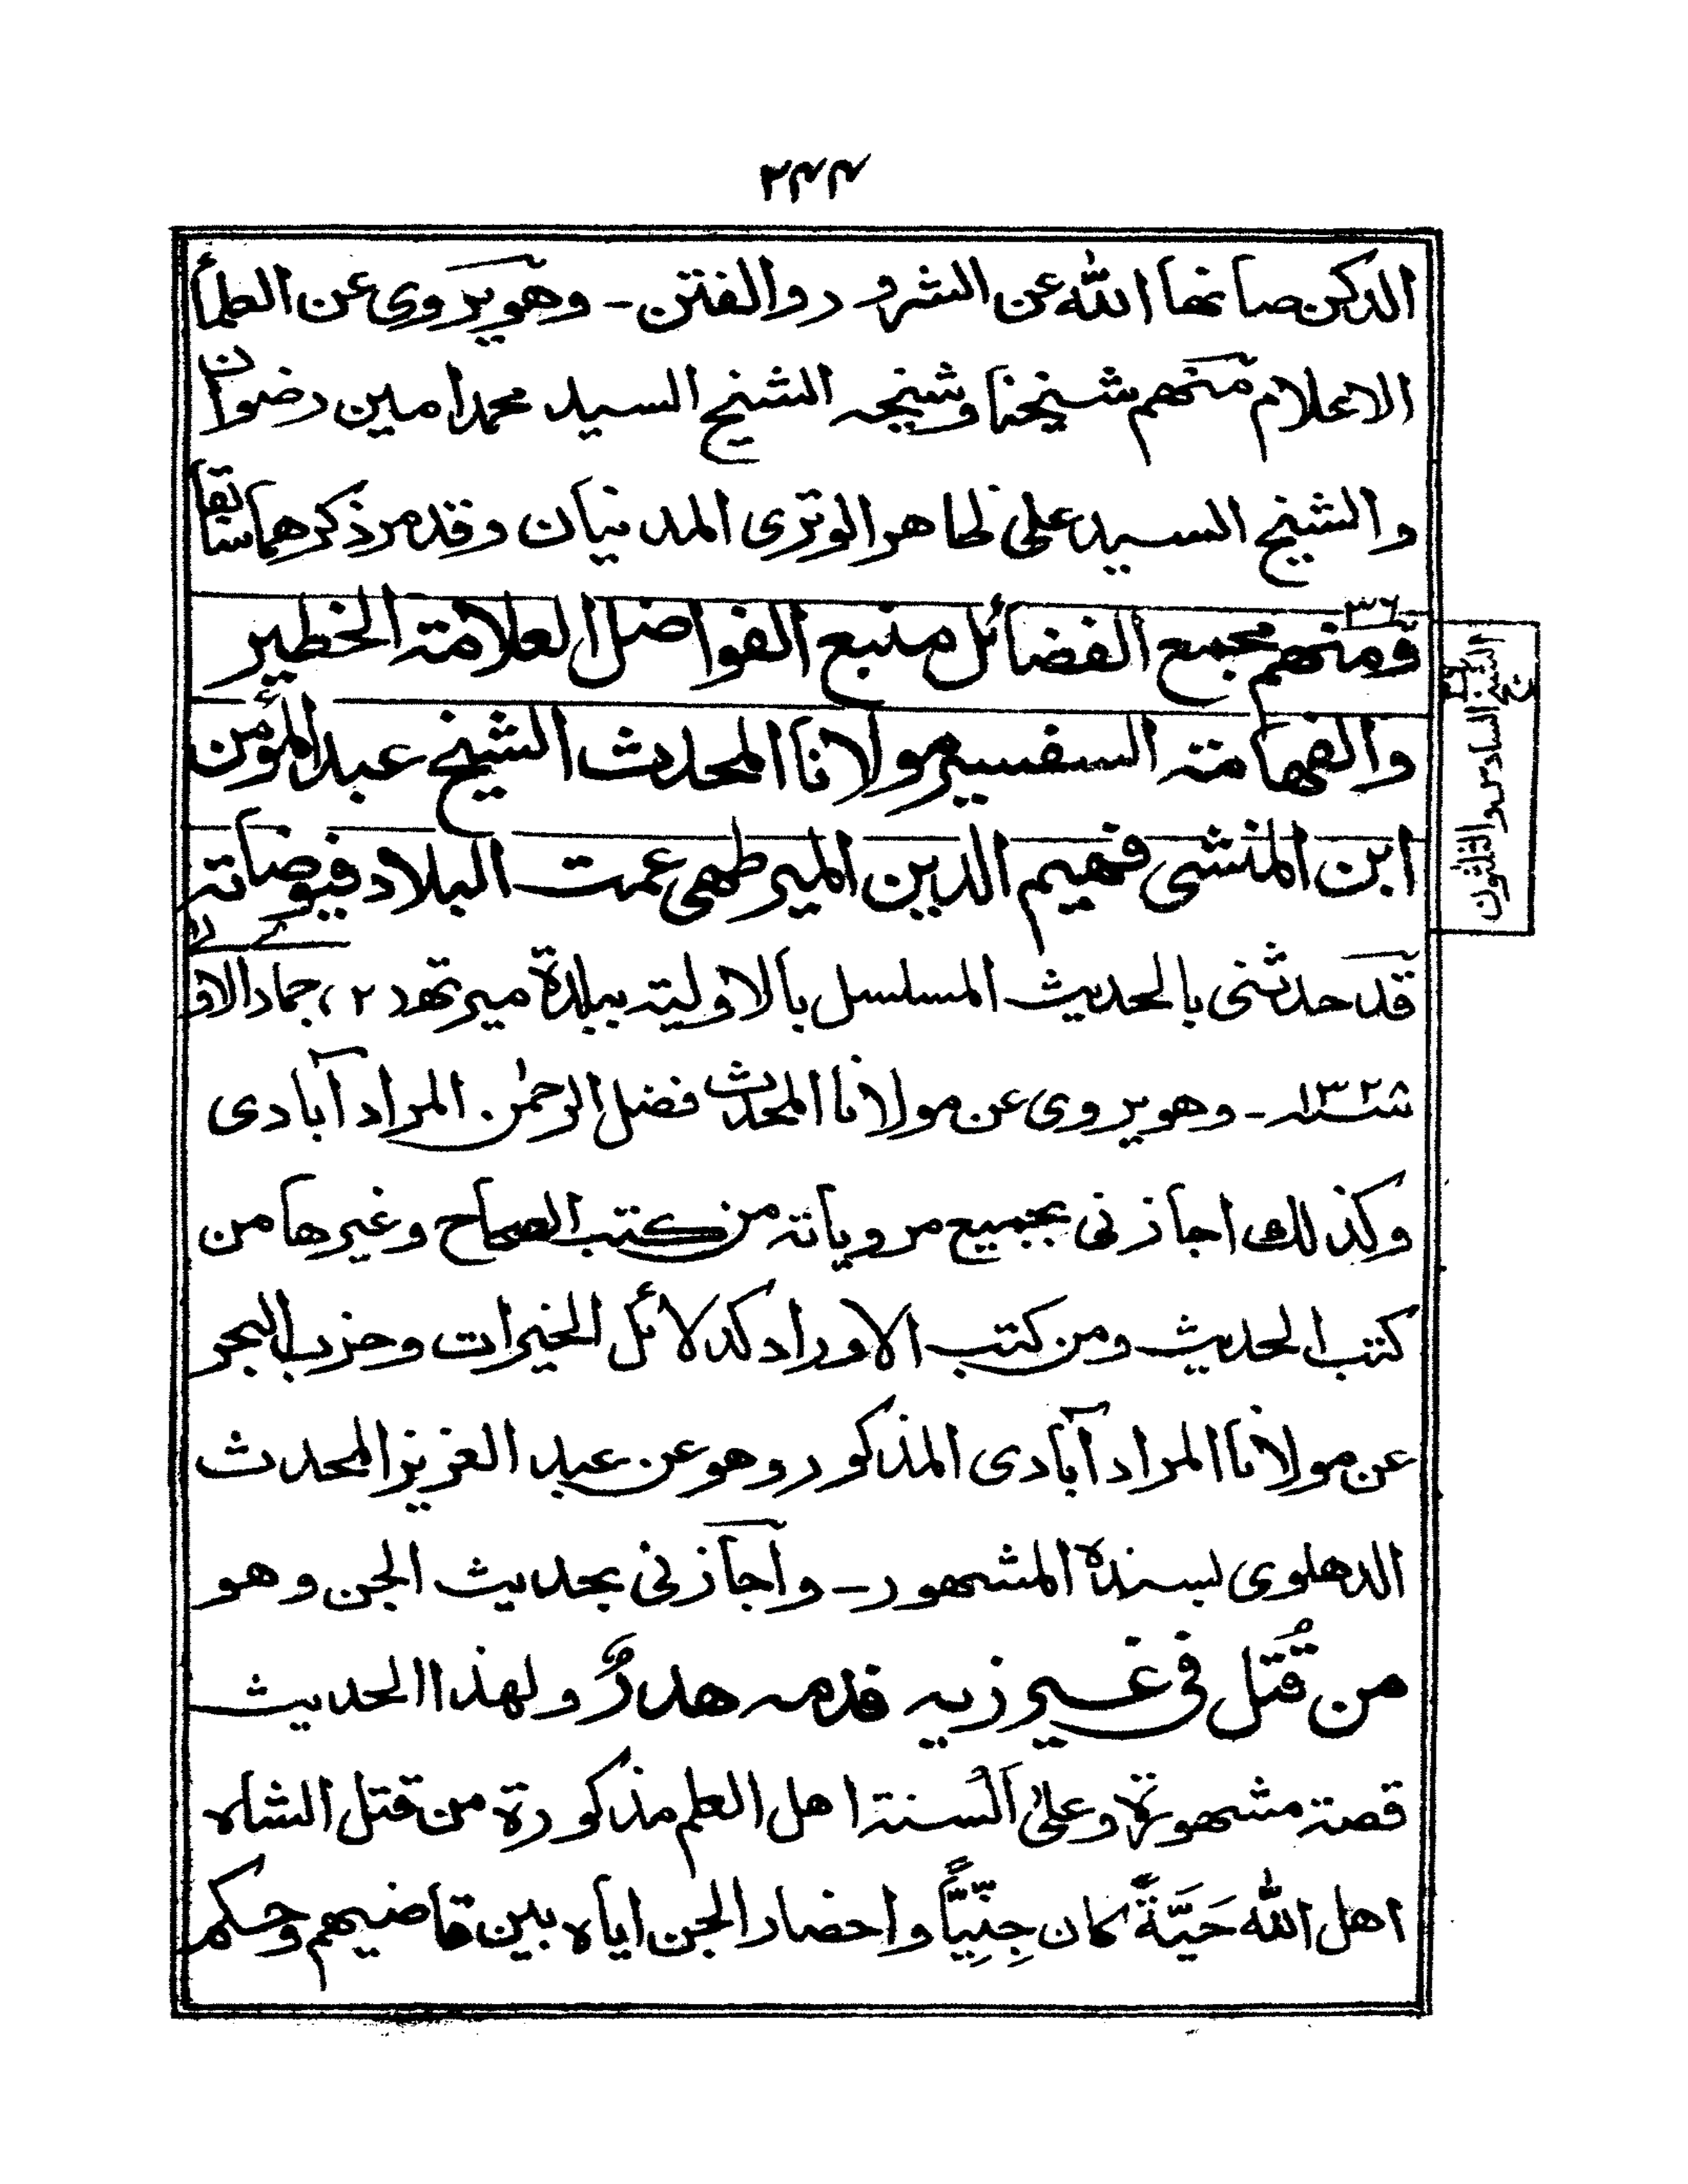 ٢٤٤
الدكن صانها الله عن الشرور والفتن ـ وهو يروى عن العلمأ
الاعلام منهم شيخنا وشيخه الشيخ السيد محمد امين رضوان
والشيخ السيد على ظاهر الوترى المدنيان وقد مر ذكرهما سابقا
٣٦ ومنهم مجمع الفضائل منبع الفواضل العلامة الخطير
والفهامة السفسير مولانا المحدث الشيخ عبد المؤمن
ابن المنشى فهيم الدين الميرطهى عمت البلاد فيوضاته
قد حدثنى بالحديث المسلسل بالاولية ببلدة ميرتهد ٢، جماد الاولى
سنة ١٣٢٨ ـ وهو يروى عن مولانا المحدث فضل الرحمٰن المراد آبادى
وكذلك اجازنى بجميع مروياته من كتب الصحاح وغيرها من
كتب الحديث ومن كتب الاوراد كدلائل الخيرات وحزب البحر
عن مولانا المراد آبادى المذكور وهو عن عبد العزيز المحدث
الدهلوى بسنده المشهور ـ واجازنى بحديث الجن وهو
من قُتل فى غير زيه فدمه هدرٌ ولهذا الحديث
قصة مشهورة وعلىٰ اَلْسنة اهل العلم مذكورة من قتل الشاه
اهل الله حَيَّةً كان جِنِّيًّا واحضار الجن اياه بين قاضيهم وحكم
الشيخ السادس والثلثون